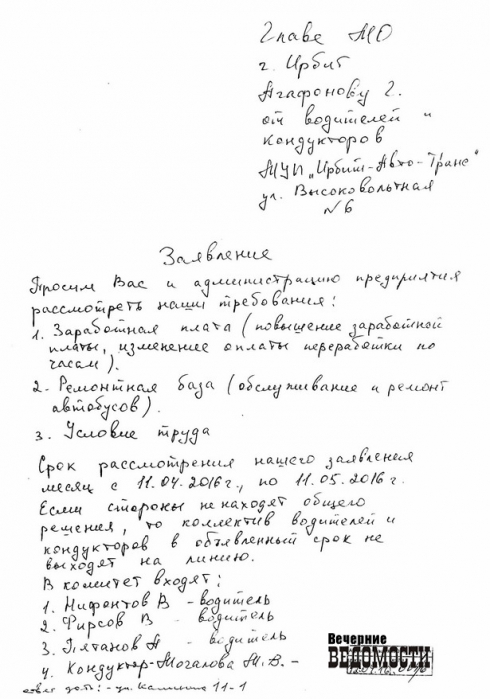 Главе МО
г. Ирбит
Агафонову Г.
от водителей и
кондукторов
МУП „Ирбит-Авто-Транс"
ул. Высоковольтная
№6
Заявление
Просим Вас и администрацию предприятия
рассмотреть наши требования:
1. Заработная плата (повышение заработной
платы, изменение оплаты переработки по
часам).
2. Ремонтная база (обслуживание и ремонт
автобусов).
3. Условие труда
Срок рассмотрения нашего заявления
месяц с 11.04.2016г., по 11.05.2016г.
Если стороны не находят общего
решения, то коллектив водителей и
кондукторов в объявленный срок не
выходят на линию.
В комитет входят:
1. Нифонтов В - водитель
2. Фирсов В - водитель
3. Пятанов А - водитель
4. Кондуктор-Могалова М.В. -
ул. Калинина 11-1
Вечерние
ВЕДОМОСТИ